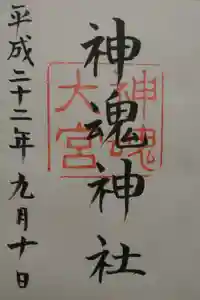 神魂神社
平成二十二年九月十日
神魂
大宮